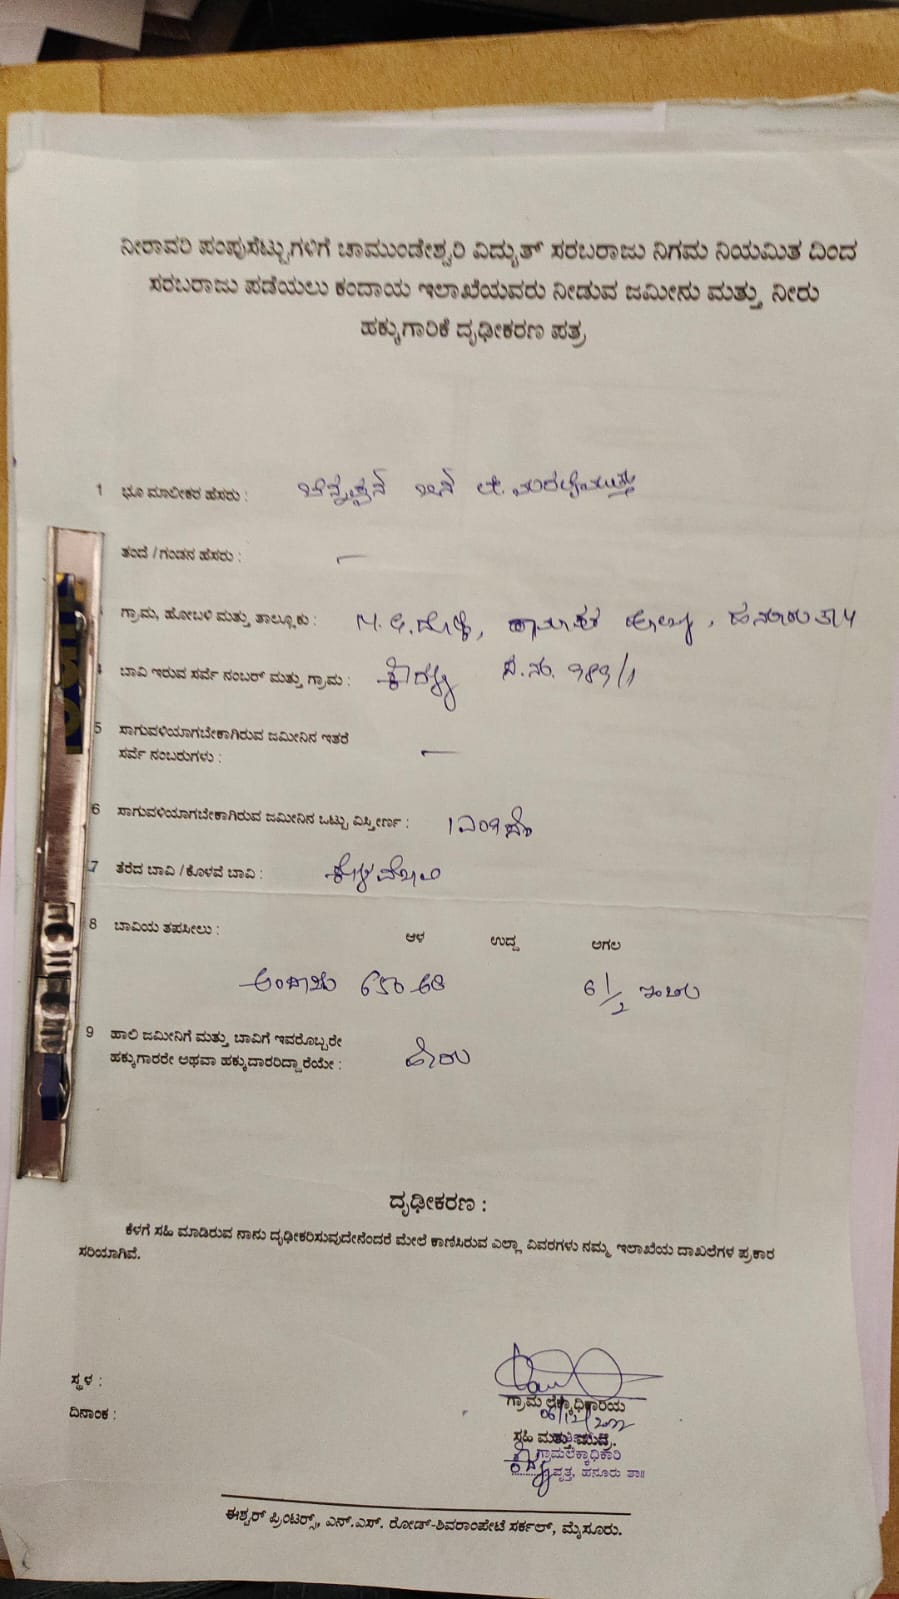 ನೀರಾವರಿ ಪಂಪುಸೆಟ್ಟುಗಳಿಗೆ ಚಾಮುಂಡೇಶ್ವರಿ ವಿದ್ಯುತ್ ಸರಬರಾಜು ನಿಗಮ ನಿಯಮಿತ ದಿಂದ
ಸರಬರಾಜು ಪಡೆಯಲು ಕಂದಾಯ ಇಲಾಖೆಯವರು ನೀಡುವ ಜಮೀನು ಮತ್ತು ನೀರು
ಹಕ್ಕುಗಾರಿಕೆ ದೃಢೀಕರಣ ಪತ್ರ
1 ಭೂ ಮಾಲೀಕರ ಹೆಸರು :
ತಂದೆ / ಗಂಡನ ಹೆಸರು : —
ಗ್ರಾಮ, ಹೋಬಳಿ ಮತ್ತು ತಾಲ್ಲೂಕು : ಹನೂರು ತಾ||
ಬಾವಿ ಇರುವ ಸರ್ವೆ ನಂಬರ್ ಮತ್ತು ಗ್ರಾಮ : ಸ.ನಂ.
5 ಸಾಗುವಳಿಯಾಗಬೇಕಾಗಿರುವ ಜಮೀನಿನ ಇತರೆ
ಸರ್ವೆ ನಂಬರುಗಳು : —
6 ಸಾಗುವಳಿಯಾಗಬೇಕಾಗಿರುವ ಜಮೀನಿನ ಒಟ್ಟು ವಿಸ್ತೀರ್ಣ :
7 ತೆರೆದ ಬಾವಿ / ಕೊಳವೆ ಬಾವಿ : ಕೊಳವೆಬಾವಿ
8 ಬಾವಿಯ ತಪಸೀಲು : ಆಳ ಉದ್ದ ಅಗಲ
ಅಂದಾಜು 650 ಅಡಿ 6 1/2 ಇಂಚು
9 ಹಾಲಿ ಜಮೀನಿಗೆ ಮತ್ತು ಬಾವಿಗೆ ಇವರೊಬ್ಬರೇ
ಹಕ್ಕುಗಾರರೇ ಅಥವಾ ಹಕ್ಕುದಾರರಿದ್ದಾರೆಯೇ : ಹೌದು
ದೃಢೀಕರಣ :
ಕೆಳಗೆ ಸಹಿ ಮಾಡಿರುವ ನಾನು ದೃಢೀಕರಿಸುವುದೇನೆಂದರೆ ಮೇಲೆ ಕಾಣಿಸಿರುವ ಎಲ್ಲಾ ವಿವರಗಳು ನಮ್ಮ ಇಲಾಖೆಯ ದಾಖಲೆಗಳ ಪ್ರಕಾರ
ಸರಿಯಾಗಿವೆ.
ಸ್ಥಳ :
ಗ್ರಾಮ ಲೆಕ್ಕಾಧಿಕಾರಿಯ
ದಿನಾಂಕ :
ಸಹಿ ಮತ್ತು ಮುದ್ರೆ.
ಗ್ರಾಮಲೆಕ್ಕಾಧಿಕಾರಿ
ವೃತ್ತ, ಹನೂರು ತಾ||
ಈಶ್ವರ್ ಪ್ರಿಂಟರ್ಸ್, ಎನ್.ಎಸ್. ರೋಡ್-ಶಿವರಾಂಪೇಟೆ ಸರ್ಕಲ್, ಮೈಸೂರು.